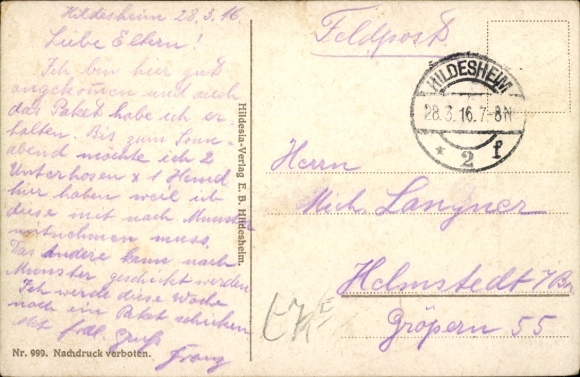 Hildesheim 28.3.16.
Liebe Eltern!
Ich bin hier gut
angekommen und auch
das Paket habe ich er-
halten. Bis zum Sonn-
abend möchte ich 2
Unterhosen x 1 Hemd
hier haben weil ich
diese mit nach Munster
mitnehmen muss.
Das andere kann nach
Munster geschickt werden
Ich werde diese Woche
noch ein Paket schicken
Mit frdl. Gruß
Franz
Nr. 999. Nachdruck verboten.
Hildesia-Verlag E. B. Hildesheim.
Feldpost
HILDESHEIM
28.3.16.7-8N
* 2 f
Herrn
Mich. Langner
Helmstedt /Br.
Gröpern 55